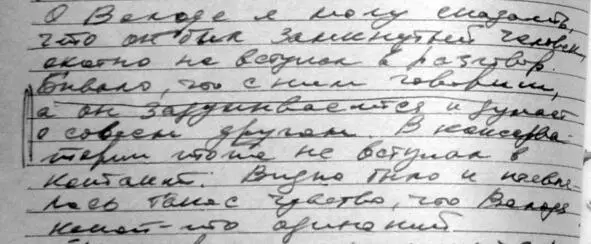 О Володе я могу сказать,
что он был замкнутый человек,
охотно не вступал в разговор.
Бывало, что с ним говоришь,
а он задумывается и думает
о совсем другом. В консерва-
тории тоже не вступал в
контакт. Видно было и
лось такое чувство, что Володя
какой-то одинокий